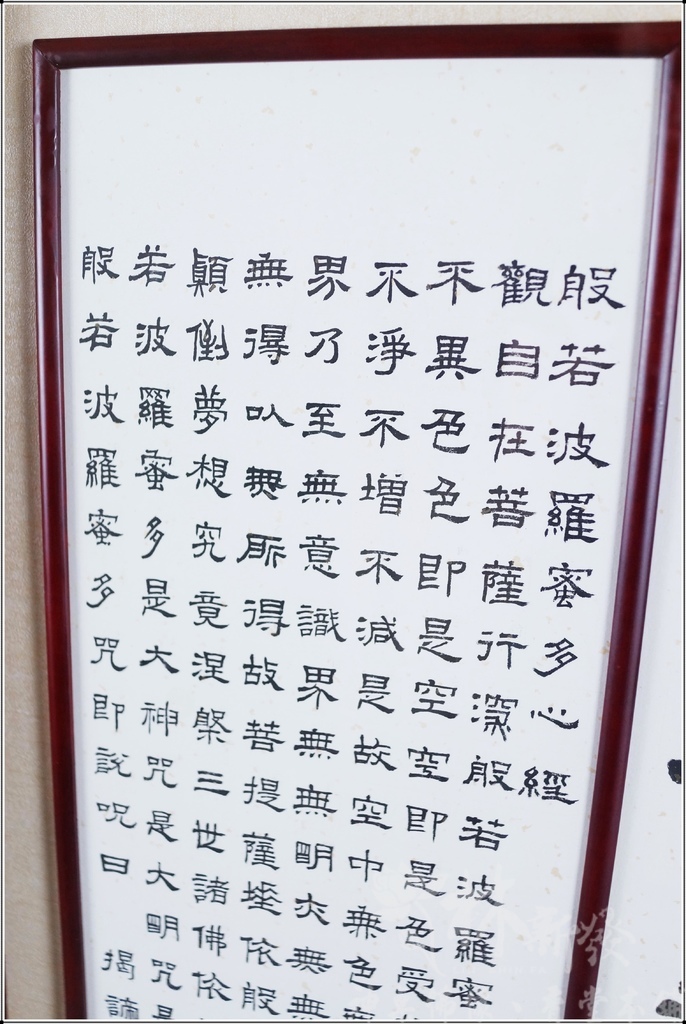 般若波羅蜜多心經
觀自在菩薩行深般若波羅蜜
不異色色即是空空即是色受
不淨不增不減是故空中無色
界乃至無意識界無無明亦無無
無得以無所得故菩提薩埵依般
顛倒夢想究竟涅槃三世諸佛依
若波羅蜜多是大神咒是大明咒是
般若波羅蜜多咒即說咒曰 揭諦